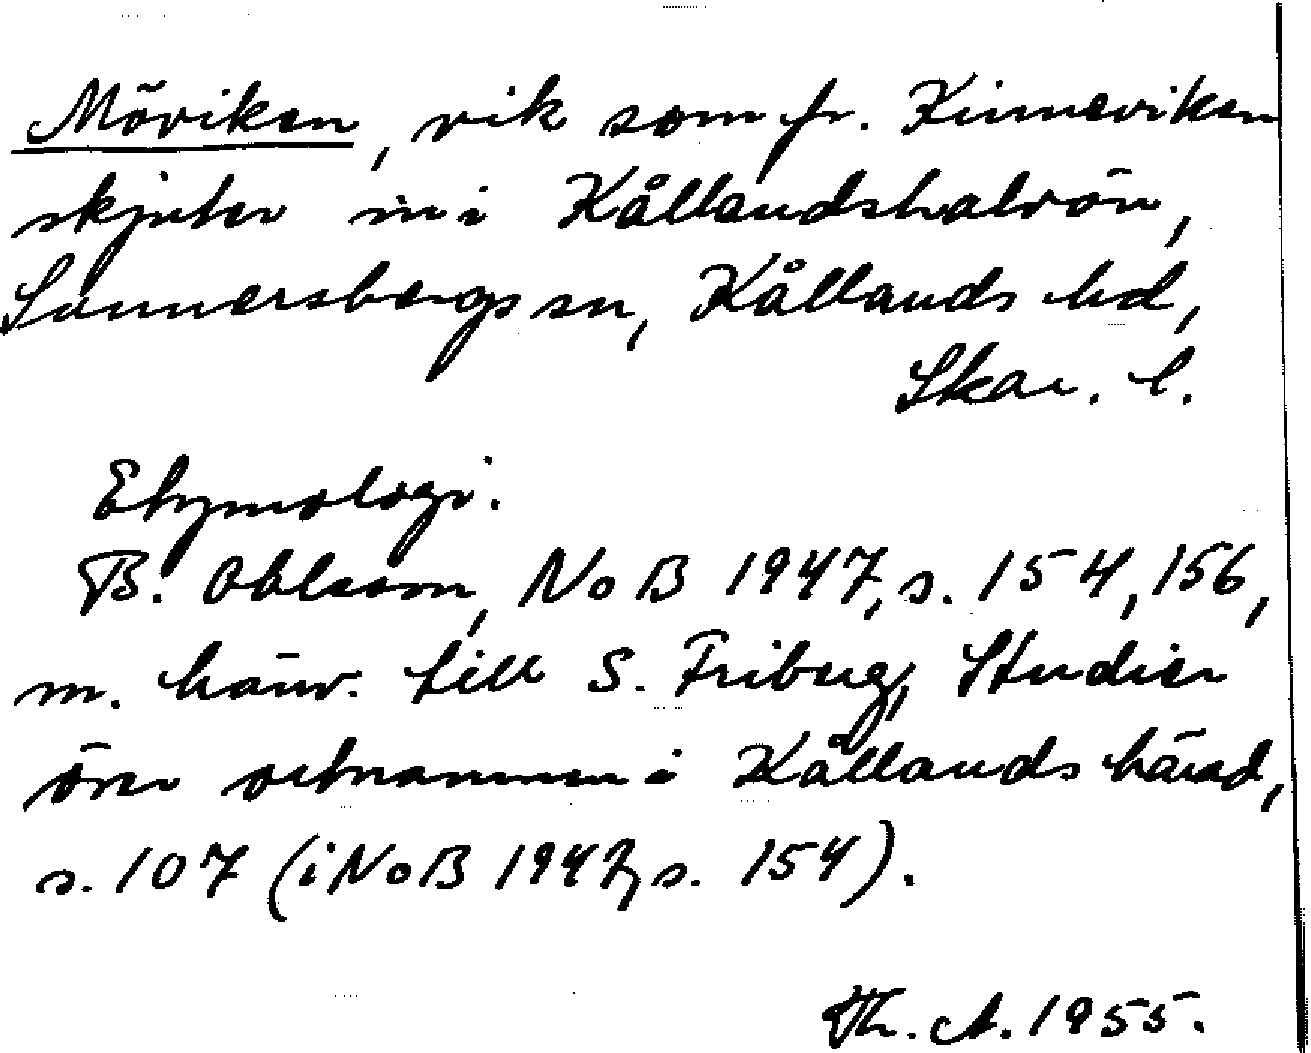 Möviken, vik som fr. Kinneviken
skjuter in i Kållandshalvön,
Sunnersbergs sn, Kållands hd,
Skar. l.
Etymologi.
B. Ohlsson, NoB 1947, s. 154, 156,
m. hänv. till S. Fribug, Studier
över ortnamnen i Kållands härad,
s. 107 (i NoB 1947, s. 154).
Th. A. 1955.